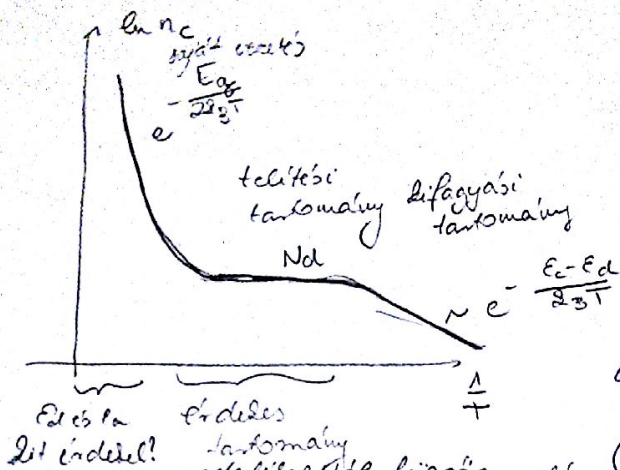 ln n_c
saját vezetés
e^{-\frac{E_g}{2k_BT}}
telítési
tartomány
kifagyási
tartomány
Nd
~ e^{-\frac{ε_c-ε_d}{2k_BT}}
\frac{1}{T}
kit érdekel?
érdekes
tartomány